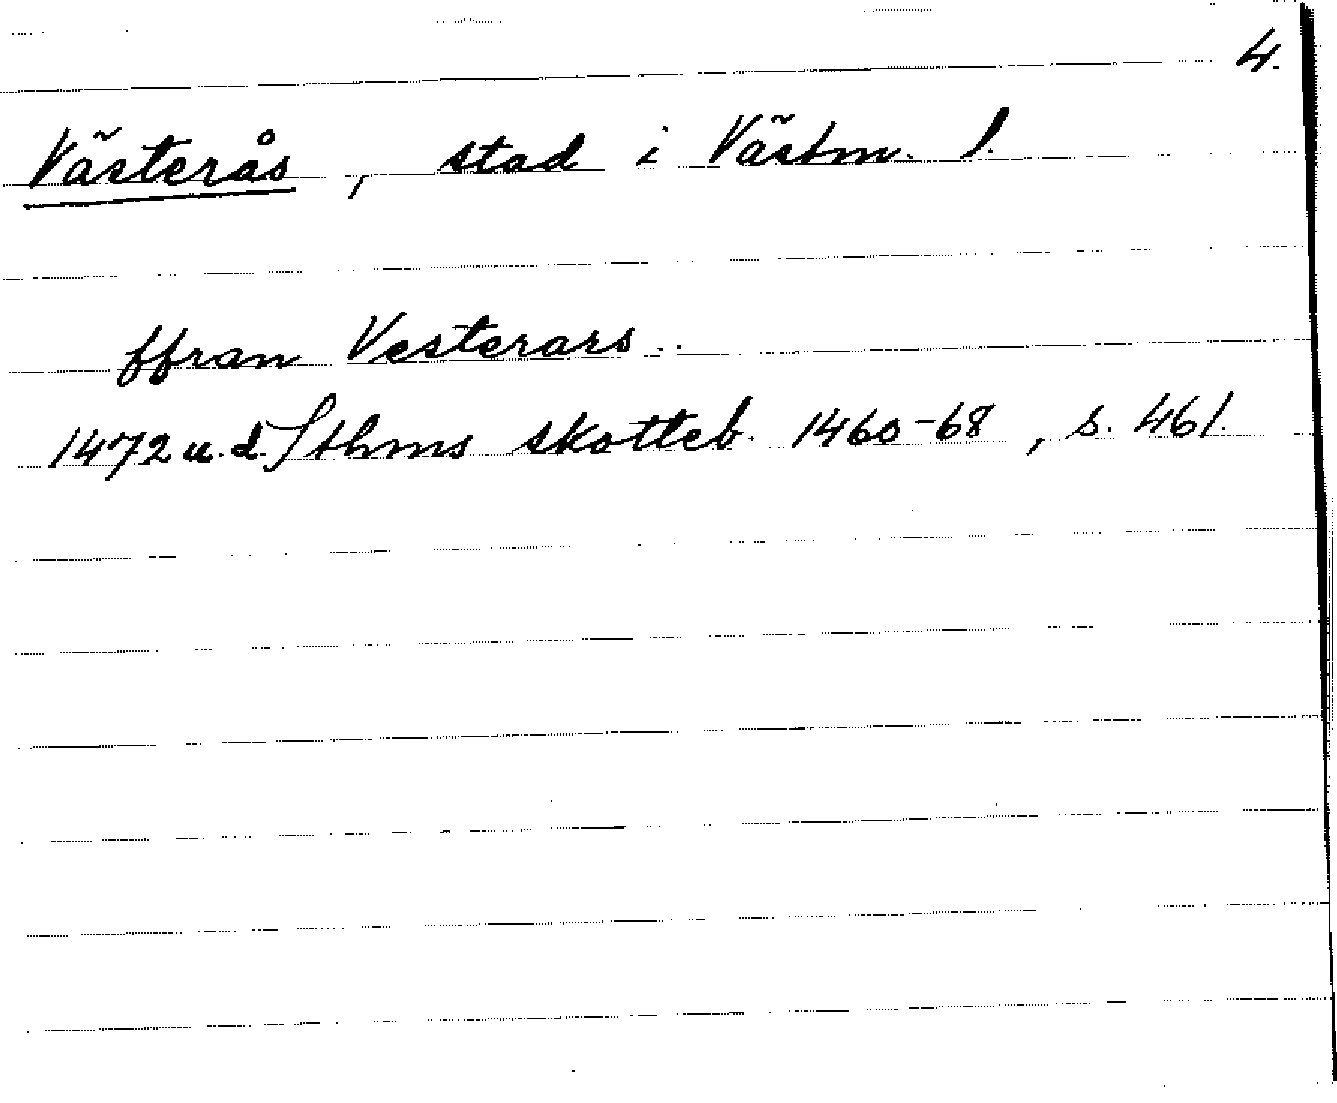 4.
Västerås, stad i Västm. l.
ffran Vesterars
1472 u. d. Sthms skotteb. 1460-68, s. 461.